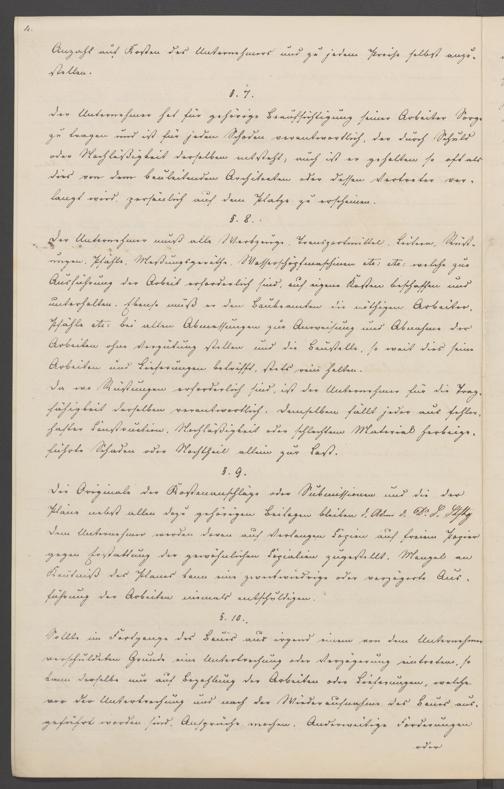 4.
Anzahl auf Kosten des Unternehmers und zu jedem Preise selbst anzu-
stellen.
§. 7.
Der Unternehmer hat für gehörige Beaufsichtigung seiner Arbeiter Sorge
zu tragen und ist für jeden Schaden verantwortlich, der durch Schuld
oder Nachläßigkeit derselben entsteht; auch ist er gehalten so oft als
dies von dem bauleitenden Architekten oder dessen Vertreter ver-
langt wird, persönlich auf dem Platze zu erscheinen.
§. 8.
Der Unternehmer muß alle Werkzeuge, Transportmittel, Leitern, Rüst-
ungen, Pfähle, Meßungsgeräthe, Wasserschöpfmaschinen etc: etc: welche zur
Ausführung der Arbeit erforderlich sind, auf eigene Kosten beschaffen und
unterhalten. Ebenso muß er den Baubeamten die nöthigen Arbeiter,
Pfähle etc: bei allen Abmessungen zur Anweisung und Abnahme der
Arbeiten ohne Vergütung stellen und die Baustelle, so weit dies seine
Arbeiten und Lieferungen betrifft, stets rein halten.
Da wo Rüstungen erforderlich sind, ist der Unternehmer für die Trag-
fähigkeit derselben verantwortlich. Demselben fällt jeder aus fehler-
hafter Construction, Nachläßigkeit oder schlechtem Material herbeige-
führte Schaden oder Nachtheil allein zur Last.
§. 9.
Die Originale der Kostenanschläge oder Submissionen und die der
Pläne nebst allen dazu gehörigen Beilagen bleiben
Dem Unternehmer werden deren auf Verlangen Copien auf freiem Papier
gegen Erstattung der gewöhnlichen Copialien zugestellt. Mangel an
Kentniß des Planes kann eine zweckwiedrige oder verzögerte Aus-
führung der Arbeiten niemals entschuldigen.
§. 10.
Sollte im Fortgange des Baues aus irgend einem von dem Unternehmer
verschuldeten Grunde eine Unterbrechung oder Verzögerung eintreten, so
kann derselbe nur auf Bezahlung der Arbeiten oder Lieferungen, welche
vor der Unterbrechung und nach der Wiederaufnahme des Baues aus-
geführt worden sind, Ansprüche machen. Anderweitige Forderungen
oder